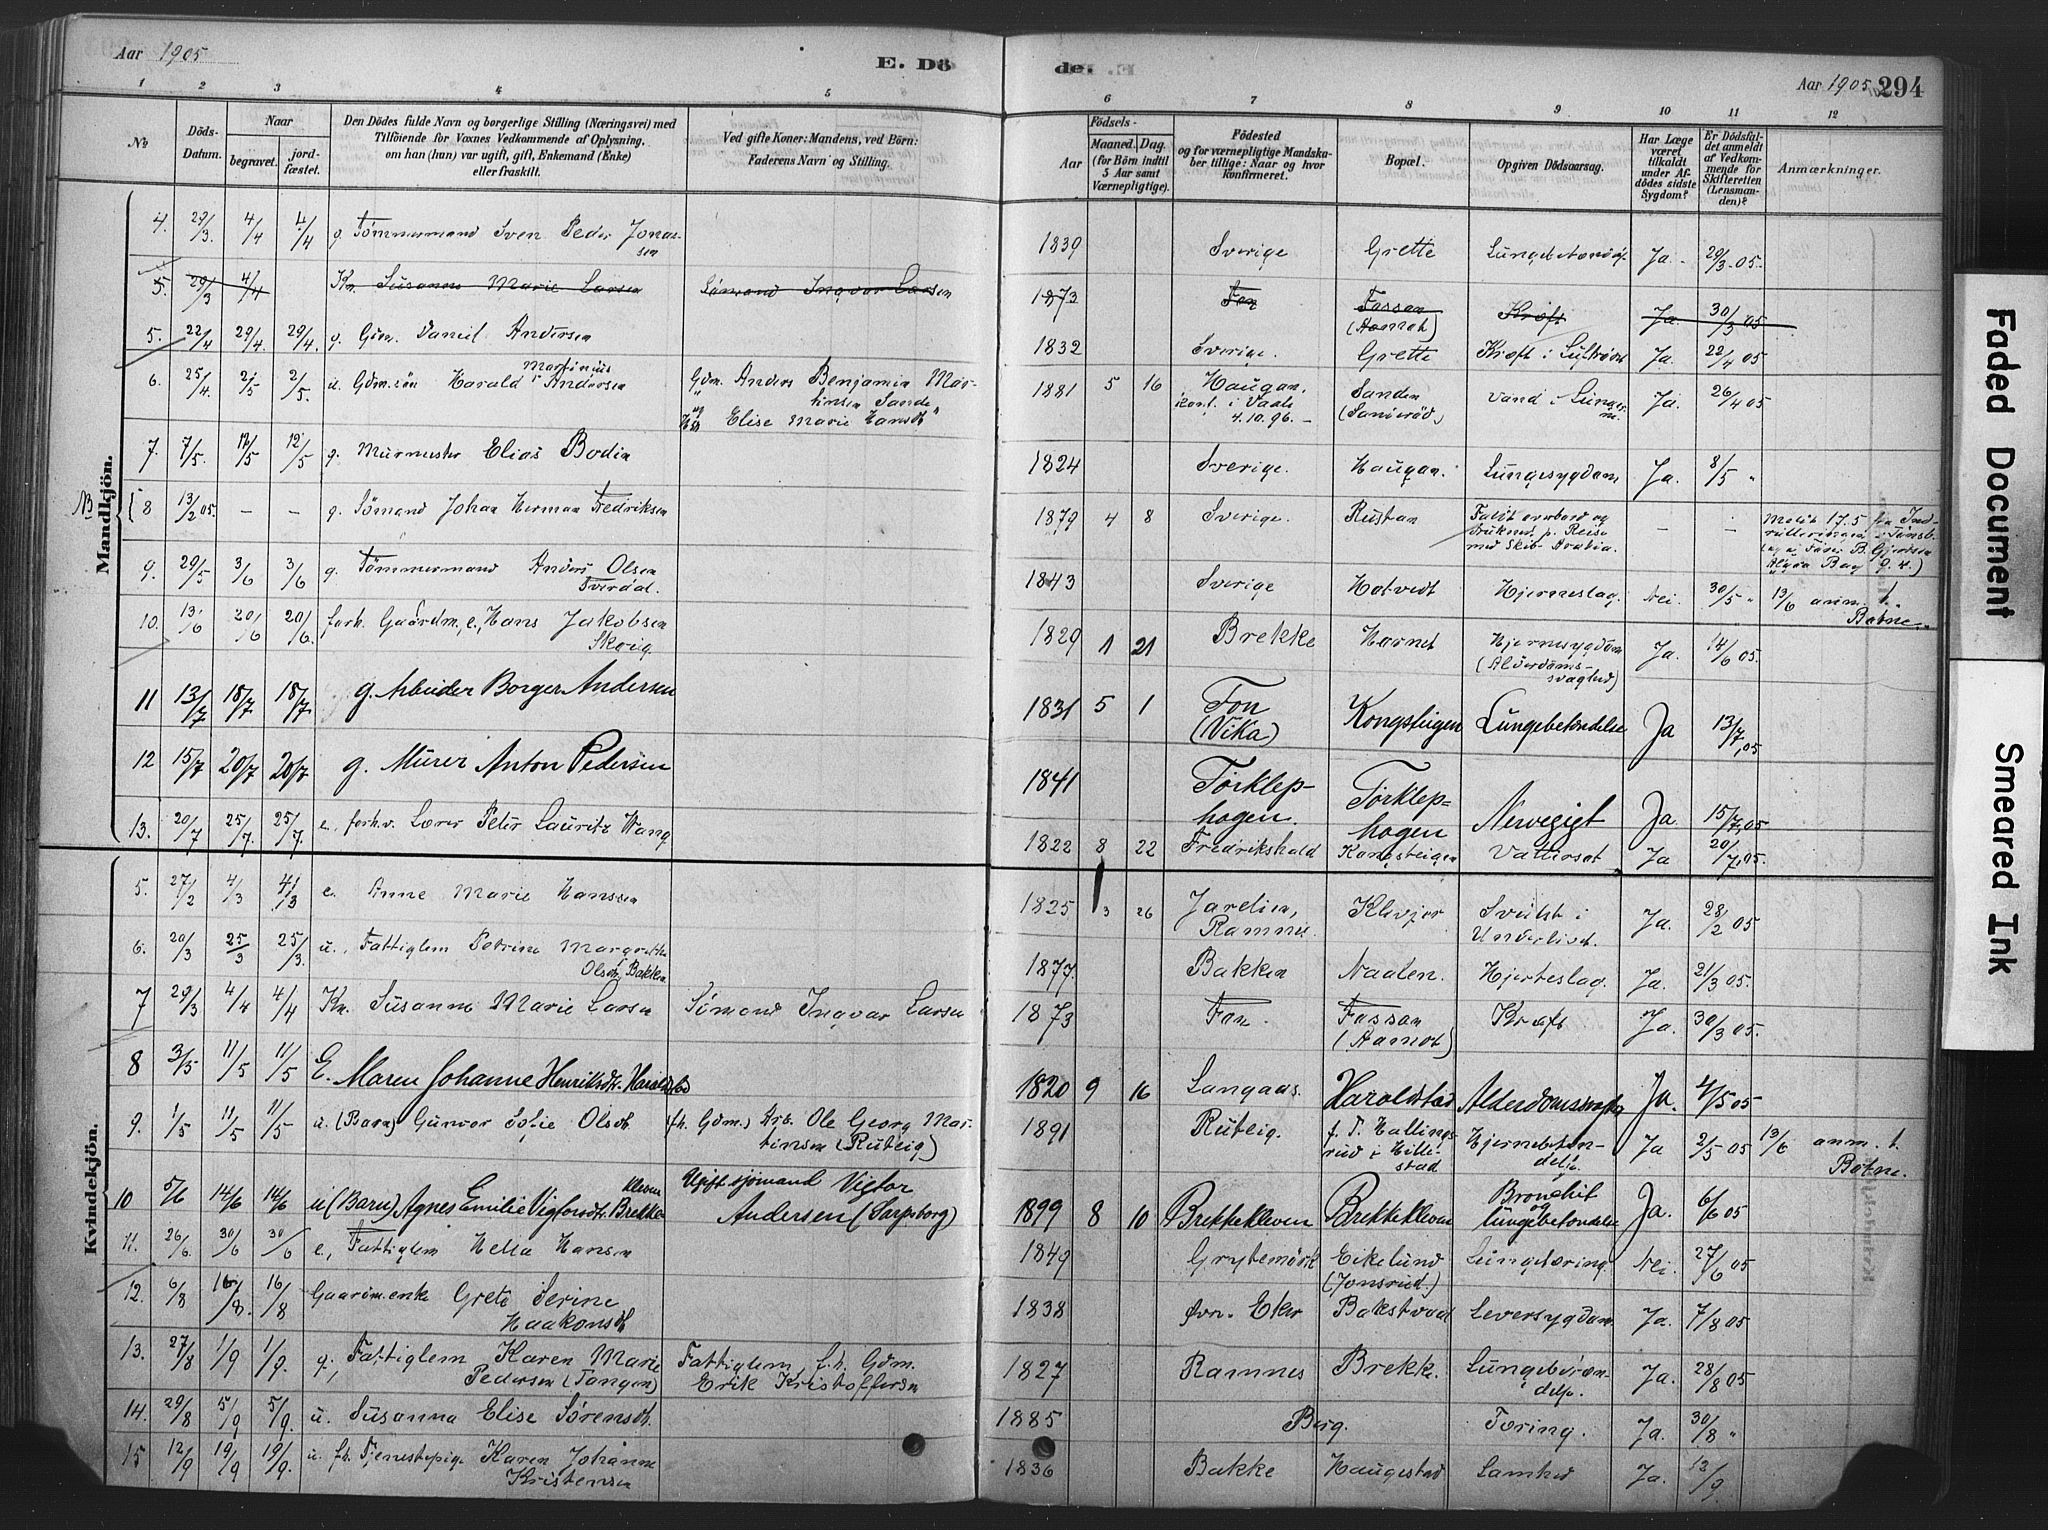 Aar 1905
E. Dö
de.
Aar 1905
294
1 2 3 4 5 6 7 8 9 10 11 12
No
Döds-Datum.
Naar
begravet.
jordfæstet.
Den Dödes fulde Navn og borgerlige Stilling (Næringsvei) med
Tilföiende for Voxnes Vedkommende af Oplysning,
om han (hun) var ugift, gift, Enkemand (Enke)
eller fraskilt.
Ved gifte Koner: Mandens, ved Börn:
Faderens Navn og Stilling.
Födsels-
Aar
Maaned. Dag.
(for Börn indtil
5 Aar samt
Værnepligtige).
Födested
og for værnepligtige Mandska-
ber tillige: Naar og hvor
Konfirmeret.
Bopæl.
Opgiven Dödsaarsag.
Har Læge
været
tilkaldt
under Af-
dödes sidste
Sygdom?
Er Dödsfal-
det anmeldt
af Vedkom-
mende for
Skifteretten
(Lensman-
den)?
Anmærkninger.
Mandkjön.
4. 29/3 4/4 4/4 g. Tømmermand Sven Peder Jonassen 1839 Sverige Grette Ja. 29/3 05.
5. 29/3 4/4 Kn. Susanne Marie Larsen Sømand Ingvar Larsen 1873 Fon Fossan (Aamot) Kræft Ja 30/3 05
5. 22/4 29/4 29/4 g. Gdm. Daniel Andersen 1832 Sverige. Grette Kræft i Ja. 22/4 05
6. 25/4 2/5 2/5 u. Gdm. søn Harald Martinius Andersen Gdm. Anders Benjamin Martinsen Sande og Elise Marie Hansdt 1881 5 16 Haugan, konf. i Vaale 4.10.96. Sanden (Sanderød) Vand i Lungerne Ja. 26/4 05
7. 7/5. 12/5 12/5 g. Murmester Elias Bodin 1824 Sverige. Haugan. Lungesygdom Ja. 8/5 "
NB 8 13/2 05. – – g. Sømand Johan Herman Fredriksen 1879 4 8 Sverige. Rustan Faldt overbord og druknede p. Reise med Skib Arabia. – – Meldt 17.5 fra Ind-
9. 29/5 3/6 3/6 g. Tømmermand Anders Olsen Tverdal. 1843 Sverige Hotvedt Hjerneslag. Nei. 30/5 " 13/6 anm. t. Botne.
10. 13/6 20/6 20/6. forh. Gaardm., e., Hans Jakobsen 1829 1 21 Brekke Hornet Hjernesygdom (Alderdomssvaghed) Ja. 14/6 05.
11 13/7 18/7 18/7 g. Arbeider Borger Andersen 1831 5 1 Fon (Vika) Kongsteigen Lungebetændelse Ja 13/7 05
12 15/7 20/7 20/7 g. Murer Anton Pedersen 1841 Torklep-hogen. Torklep-hogen Nervegigt Ja. 15/7 05
13. 20/7 25/7. 25/7. e. forhv. Lærer Peter Lauritz Wang 1822 8 22 Fredrikshald Kongsteigen Vattersot Ja 20/7 05.
Kvindekjön.
5. 27/2 4/3 4/3 e. Anne Marie Hanssen 1825 3 26 Jarelien, Ramnes. Klevjor Svulst i Underlivet. Ja. 28/2 05
6. 20/3 25/3 25/3. u. Fattiglem Petrine Margrethe Olsdt. Bakken 1877 Bakken Naalen. Hjerteslag. Ja. 21/3 05.
7 29/3 4/4 4/4 Kn. Susanne Marie Larsen Sømand Ingvar Larsen 1873 Fon. Fossan (Aamot) Kræft Ja. 30/3 05.
8 3/5 11/5 11/5 E. Maren Johanne Henriksdt. 1820 9 16 Langaas. Haroldstad Ja. 4/5 05
9. 1/5 11/5 11/5 u. (Barn) Gunvor Sofie Olsdt fh. Gdm.) Arb. Ole Georg Martinsen (Ruteig) 1891 Ruteig. f. T. Hallingsrud i Hillestad Hjernebetændelse Ja 2/5 05 13/6 anm. t. Botne.
10 5/6 14/6 14/6 u (Barn) Agnes Emilie Brekkekleven Ugift sjømand Victor Andersen (Sarpsborg) 1899 8 10 Brekkekleven Brekkekleven Bronchit og lungebetændelse Ja. 6/6 05
11. 26/6 30/6 30/6 e., Fattiglem Hella Hansen 1849 Eikelund (Jonsrud) Lungetæring. Nei. 27/6 05
12. 6/8 16/8. 16/8 Gaardm.enke Grete Serine Haakonsdt 1838 Øvr. Eker Bakstvaal Leversygdom. Ja. 7/8 05
13. 27/8 1/9 1/9. g., Fattiglem Karen Marie Pedersen (Tangen) Fattiglem, f.h. Gdm. Erik Kristoffersen 1827 Ramnes Brekke. Ja. 28/8 05
14. 29/8 5/9 5/9. u. Susanna Elise Sørensdt. 1885 Berg. Tæring. Ja. 30/8 "
15 12/9 19/9 19/9. u. fh. Tjenestepige Karen Johanne Kristensen 1836 Bakke Haugestad Ja. 13/9.
Faded Document
Smeared Ink